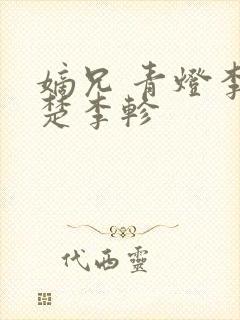 嫡兄 青燈李
楚李軫
代西靈